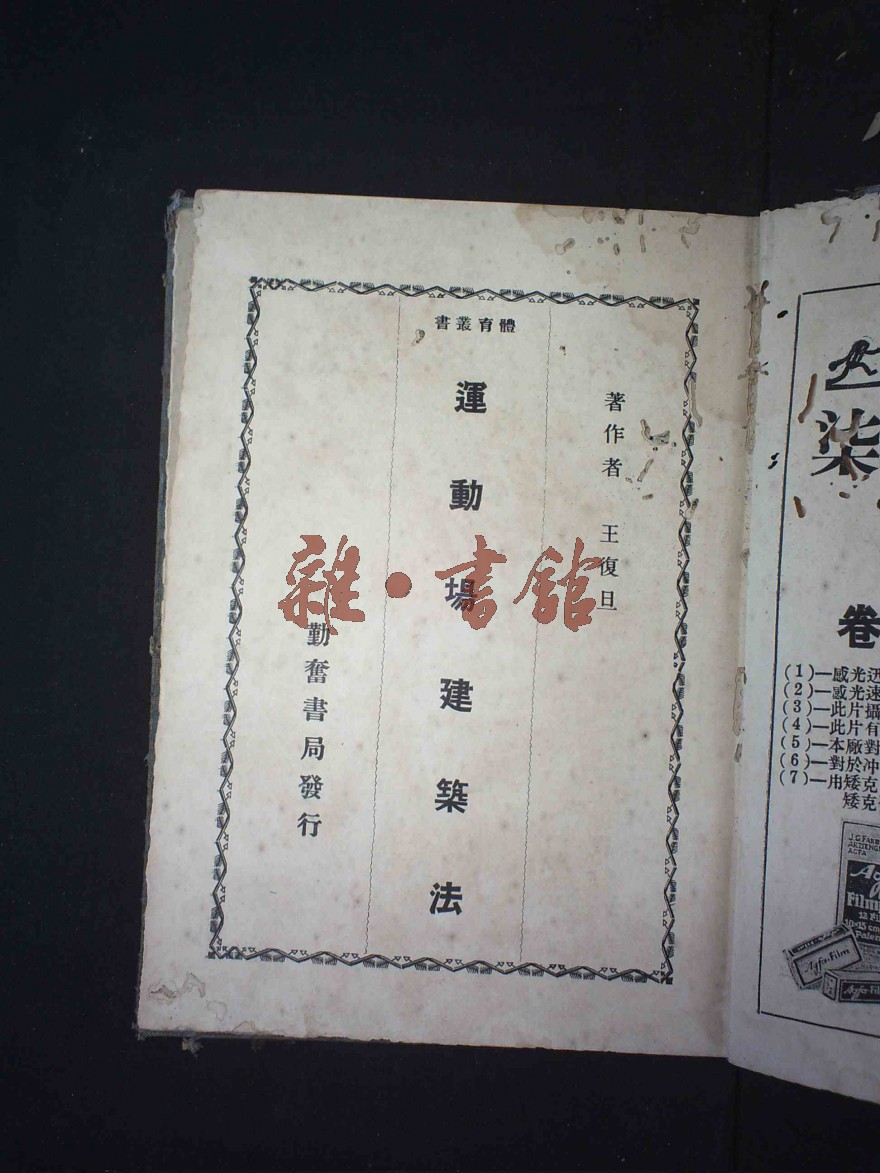 體育叢書
著作者 王復旦
運動場建築法
勤奮書局發行
雜·書館
柒
卷
(1)—感光迅
(2)—感光速
(3)—此片攝
(4)—此片有
(5)—本廠對
(6)—對於冲
(7)—用矮克
矮克
J.G. FARB
AKTIENG
AGFA
Agf
Film
12 Fi
10×15 cm
Paten
Agfa-Film
Agfa-Fil